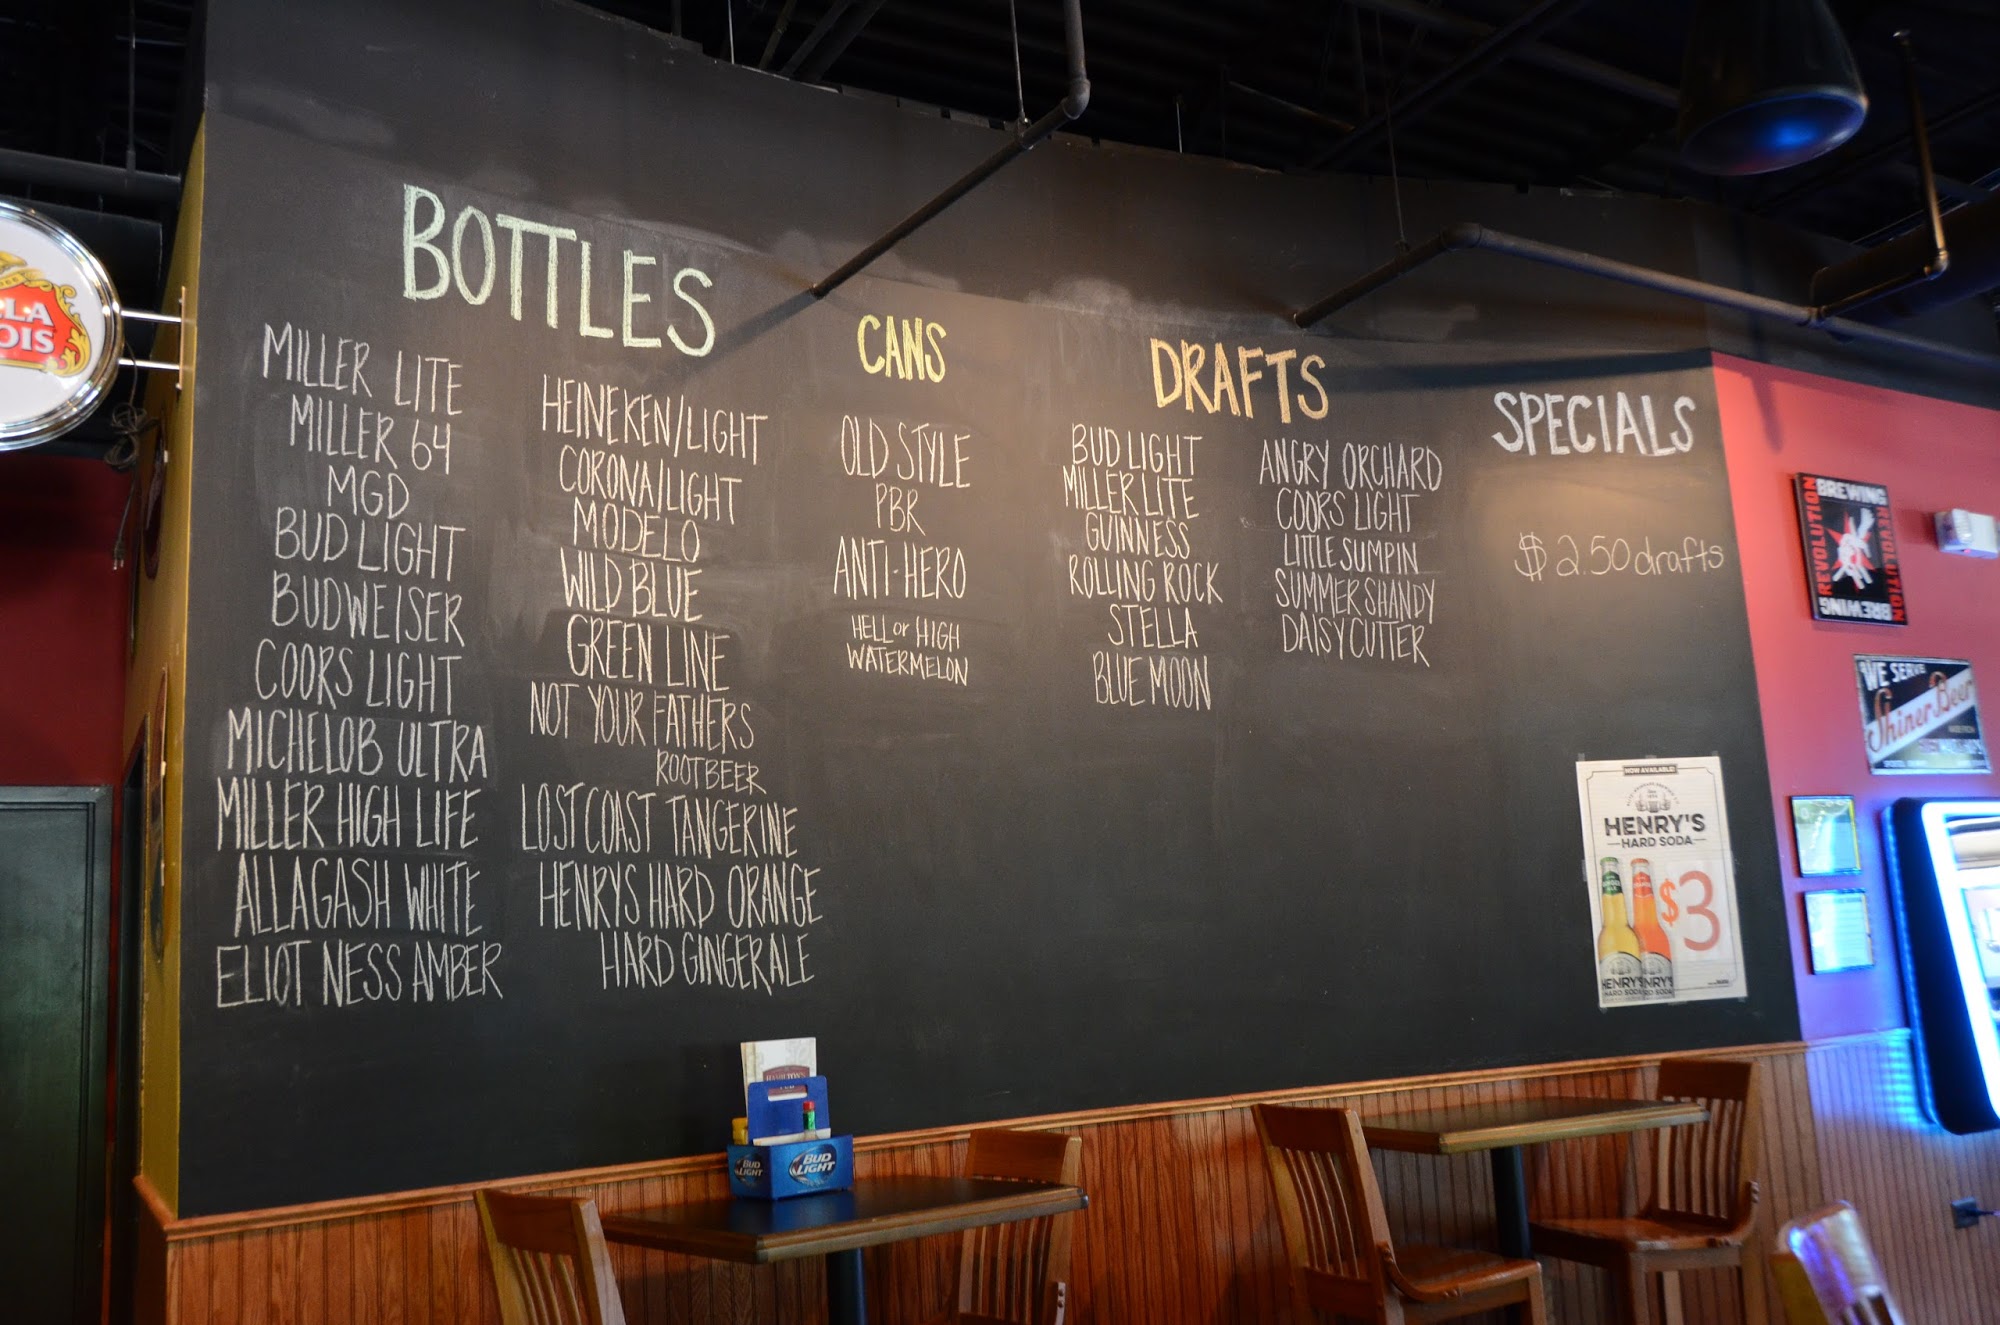 BOTTLES
MILLER LITE
MILLER 64
MGD
BUD LIGHT
BUDWEISER
COORS LIGHT
MICHELOB ULTRA
MILLER HIGH LIFE
ALLAGASH WHITE
ELIOT NESS AMBER
HEINEKEN/LIGHT
CORONA/LIGHT
MODELO
WILD BLUE
GREEN LINE
NOT YOUR FATHERS
ROOTBEER
LOST COAST TANGERINE
HENRYS HARD ORANGE
HARD GINGERALE
CANS
OLD STYLE
PBR
ANTI-HERO
HELL or HIGH
WATERMELON
DRAFTS
BUD LIGHT
MILLER LITE
GUINNESS
ROLLING ROCK
STELLA
BLUE MOON
ANGRY ORCHARD
COORS LIGHT
LITTLE SUMPIN
SUMMER SHANDY
DAISY CUTTER
SPECIALS
$2.50 drafts
NOW AVAILABLE!
HENRY'S
HARD SODA
$3
HENRY'S
HARD SODA
REVOLUTION
BREWING
REVOLUTION
BREWING
WE SERVE
Shiner Beer
BUD
LIGHT
BUD
LIGHT